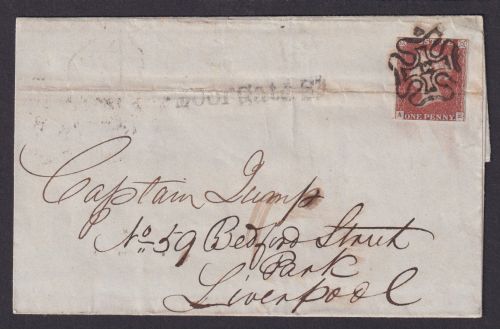 Moorgate St
ONE PENNY
Captain Jump
No 59 Bedford Street
Park
Liverpool